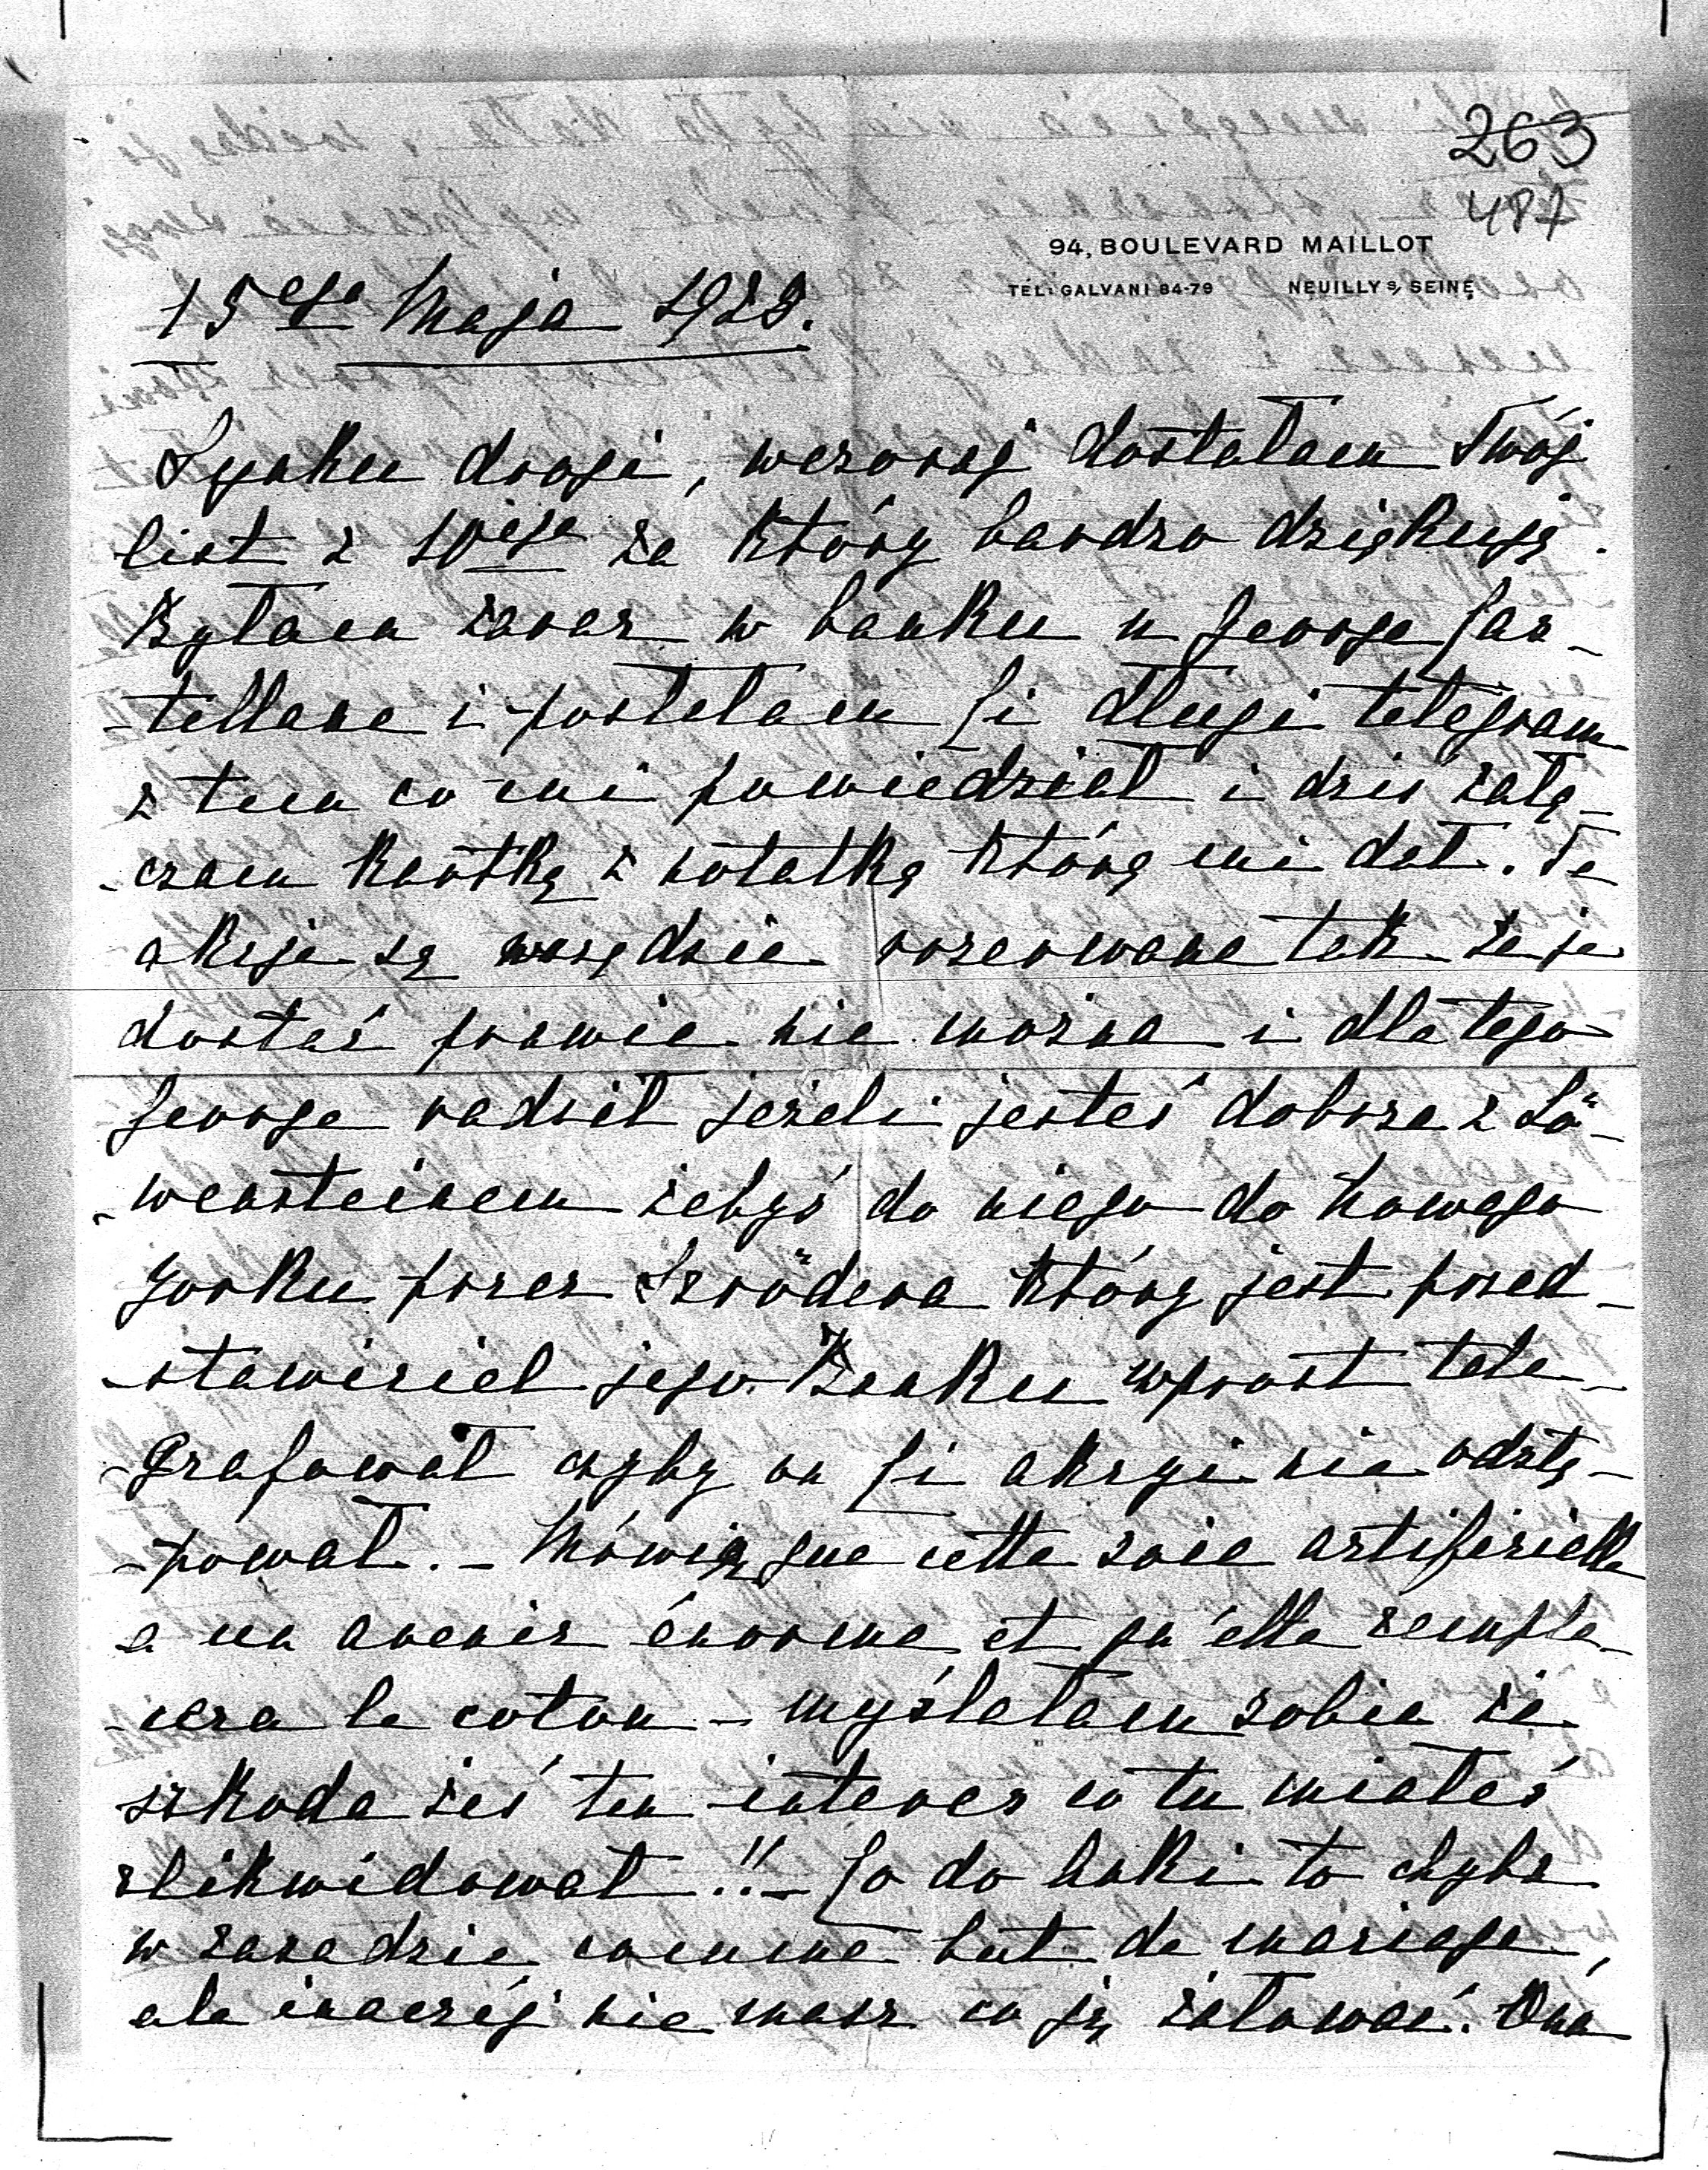 263
487
94, BOULEVARD MAILLOT
TÉL: GALVANI 84-79 NEUILLY s/ SEINE
15ego Maja 1928.
Synku drogi, wczoraj dostałam Twój
list z 10ego za który bardzo dziękuję.
Byłam zaraz w banku u George Cas-
-tellane i posłałam Ci długi telegram
z tem co mi powiedział i dziś załą-
-czam kartkę z notatką którą mi dał. Te
akcje są wszędzie rozerwane tak że je
dostać prawie nie można i dla tego
George radził jeżeli jesteś dobrze z Lö-
-wensteinem żebyś do niego do Nowego
Yorku przez Szrödera który jest przed-
-stawiciel jego Banku wprost tele-
-grafował czyby on Ci akcyi nie odstę-
-pował. - Mówią que cette soie artificielle
a un avenir énorme et qu'elle rempla-
-cera le coton - myślałam sobie że
szkoda żeś ten interes co tu miałeś
zlikwidował!! - Co do to chyba
w zasadzie comme but de mariage,
ale inaczéj nie masz co ją żałować. Ona